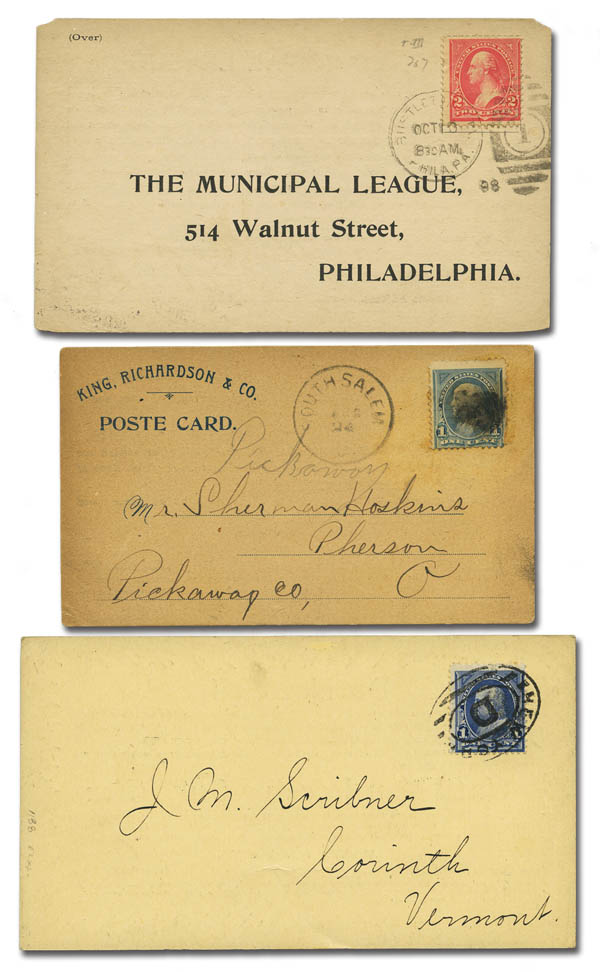 (Over)
T-III
267
UNITED STATES POSTAGE
2 TWO CENTS 2
OCT
830AM
PHILA, PA.
1
98
THE MUNICIPAL LEAGUE,
514 Walnut Street,
PHILADELPHIA.
KING, RICHARDSON & CO.
POSTE CARD.
SOUTH SALEM
1 ONE CENT 1
Pickaway
Mr. Sherman Hoskins
Pherson
Pickaway Co, O
1
D
J M. Scribner
Corinth
Vermont.